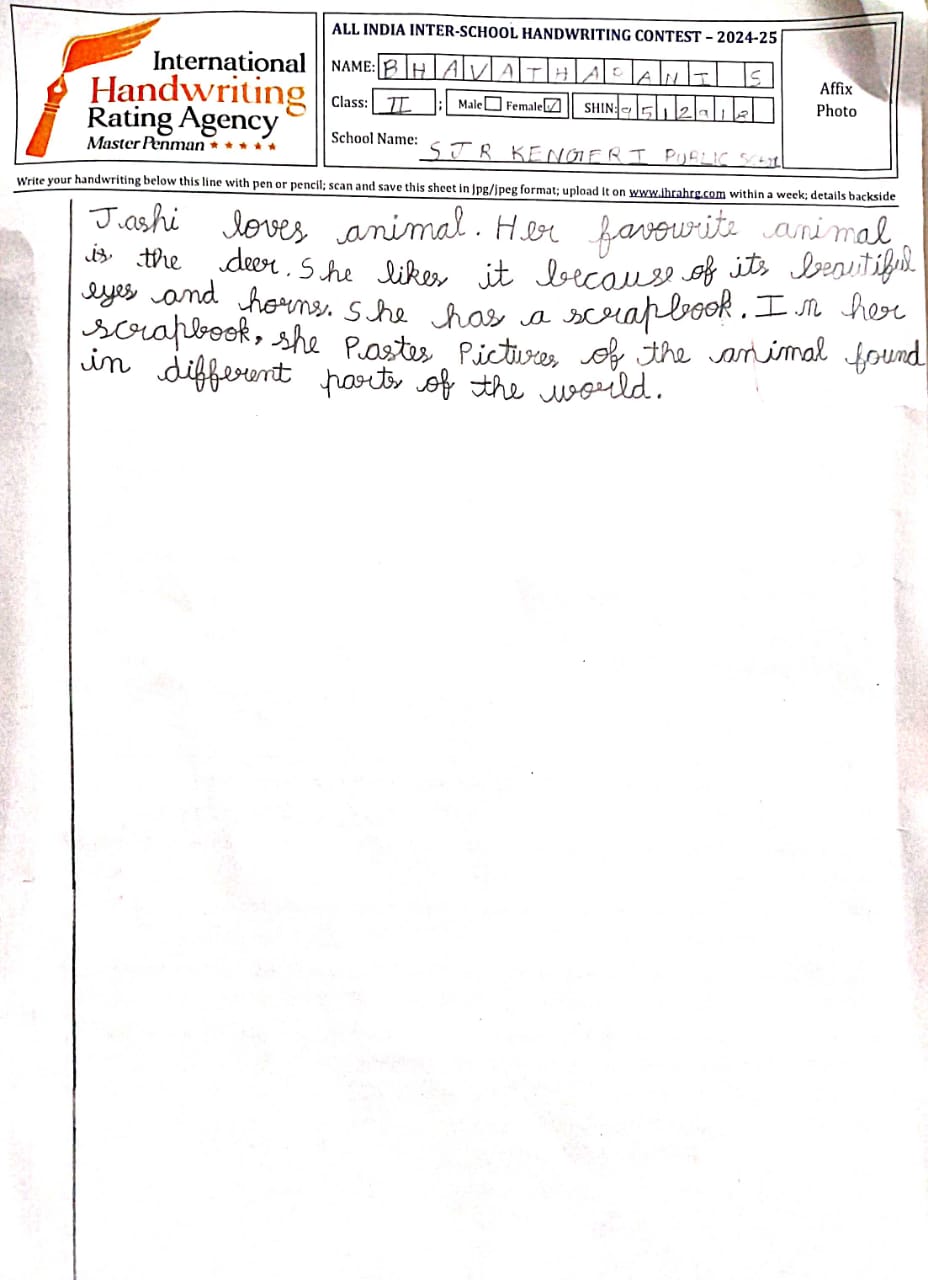 International
Handwriting
Rating Agency
Master Penman
ALL INDIA INTER-SCHOOL HANDWRITING CONTEST – 2024-25
NAME: BHAVATHA ANI S
Class: II ; Male Female SHIN:
School Name: SJR KENGERI PUBLIC
Affix
Photo
Write your handwriting below this line with pen or pencil; scan and save this sheet in jpg/jpeg format; upload it on www.ihrahrg.com within a week; details backside
Jashi loves animal. Her favourite animal
is the deer. She likes it because of its beautiful
eyes and horns. She has a scrapbook. In her
scrapbook, she Pastes Pictures of the animal found
in different parts of the world.